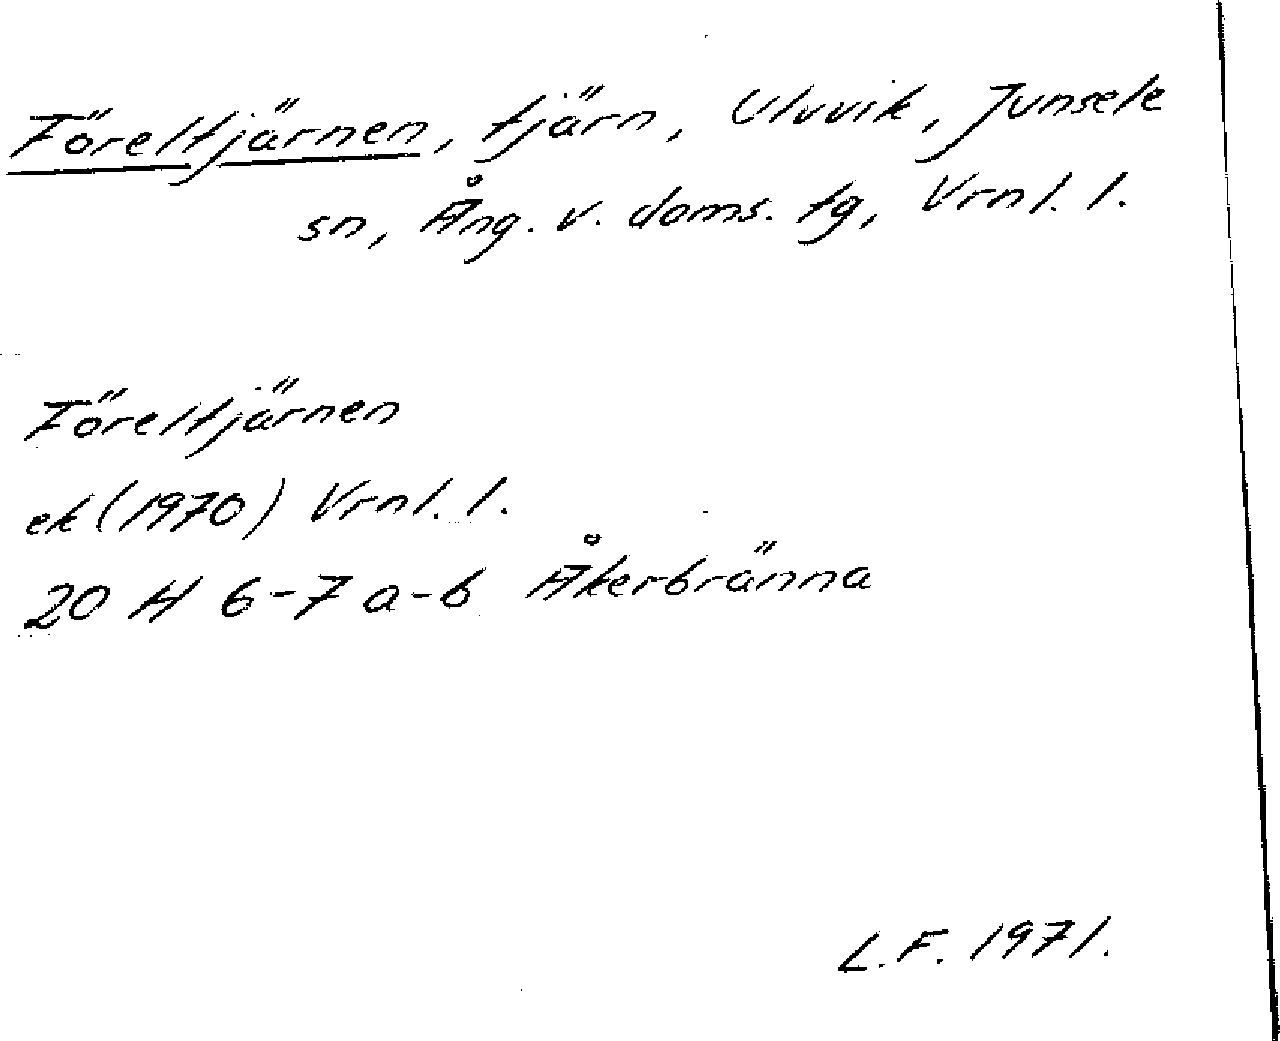 Föreltjärnen, tjärn, Ulvvik, Junsele
sn, Ång. v. doms. tg, Vrnl. l.
Föreltjärnen
ek (1970) Vrnl. l.
20 H 6-7 a-b Åkerbränna
L.F. 1971.